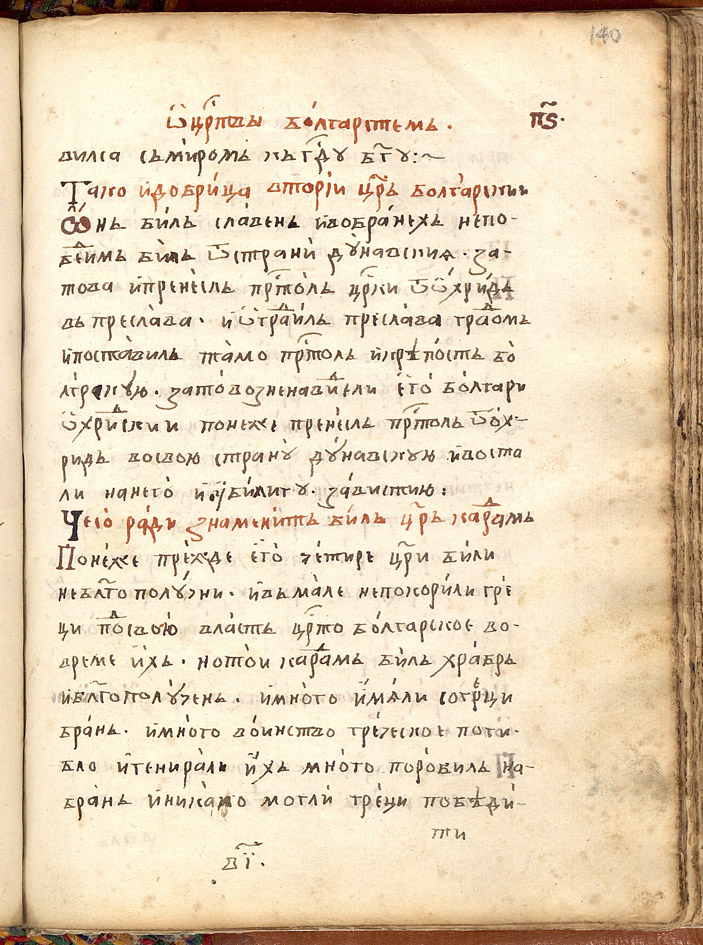 140
Ѿ цр҃твы болгарстемь. п҃ѕ.
вилса съ миромь къ гд҇ѹ бг҃ѹ:~
Тако и добрица вторїи цр҃ь болгарскии
Ѡнь билъ славень и во бранехь непо-
беⷣимь билъ ѿ страни дꙋнавския. за-
това и пренесль прⷭ҇толь црⷭ҇ки ѿ ѡхридь
въ преслава. и ѡграⷣиль преслава граⷣомь
и поставиль тамо прⷭ҇толь и крѣпость бо
лгрскую. зато возненавиⷣели его болгари
ѡхриⷣскии понеже пренесль прⷭ҇толь ѿ ѡх-
ридь во свою странꙋ дꙋнавскую и воста
ли на него и ꙋбили го. завистию:
Чесо ради знаменитъ биль цр҃ь караⷣамь
Понеже прежде его четире цр҃и били
неблг҃ополꙋчни. и въ мале непокорили гре
ци поⷣ свою власть црⷭ҇тво болгарское во-
време ихь. но тои караⷣамь биль храбрь
и блг҃ополꙋчень. и много имали со греⷰци
брань. и много воинство греческое поги-
бло и генирали ихь много поробиль на-
брань и никако могли греци победи-
ти
в҃ї.